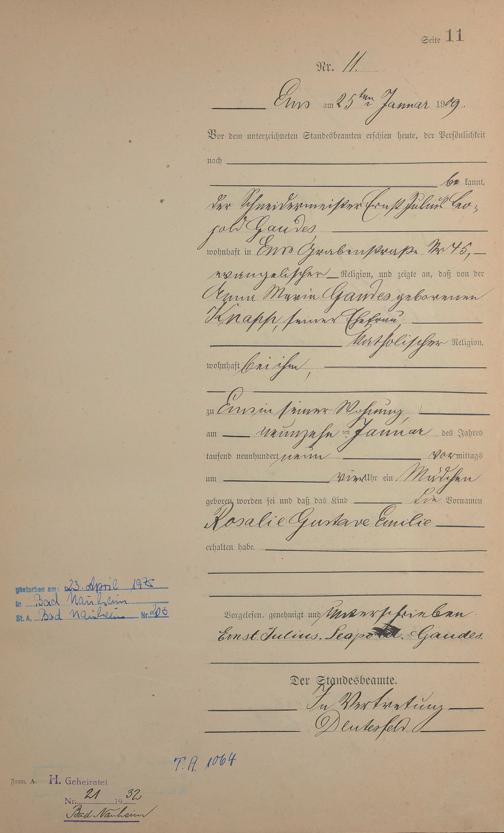 Seite 11
Nr. 11.
Ems am 25ten Januar 1909.
Vor dem unterzeichneten Standesbeamten erschien heute, der Persönlichkeit
nach
be kannt,
der Schneidermeister Ernst Julius Leo-
pold Gandes,
wohnhaft in Ems Grabenstraße Nr 45,
evangelischer Religion, und zeigte an, daß von der
Anna Maria Gandes geborenen
Knapp, seiner Ehefrau,
katholischer Religion,
wohnhaft bei ihm,
zu Ems in seiner Wohnung,
am neunzehn ten Januar des Jahres
tausend neunhundert neun vor mittags
um vier Uhr ein Mädchen
geboren worden sei und daß das Kind die Vornamen
Rosalie Gustave Emilie
erhalten habe.
gestorben am: 23. April 1975
in Bad Nauheim
St. A. Bad Nauheim Nr.
Vorgelesen, genehmigt und unterschrieben
Ernst Julius Leopold Gandes.
Der Standesbeamte.
In Vertretung
T.A. 1064
Form. A.
H. Geheiratet
Nr. 21 1932
Bad Nauheim